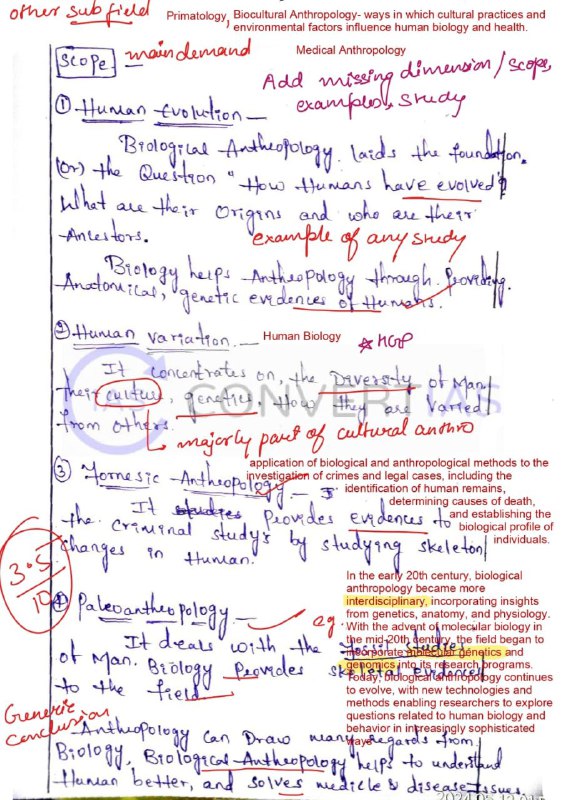 other sub field
Primatology, Biocultural Anthropology- ways in which cultural practices and
environmental factors influence human biology and health.
Scope - main demand
Medical Anthropology
Add missing dimension/scope,
examples, study
① Human Evolution —
Biological Anthropology laids the foundation.
(or) the Question "How Humans have evolved"?
What are their Origins and who are their
Ancestors.
example of any study
Biology helps Anthropology through Providing.
Anatomical, genetic evidences of Humans.
② Human variation. —
Human Biology
* HGP
It concentrates on, the Diversity of Man.
their culture, genetics, How they are Varied
from others.
CONVERT IAS
majorly part of cultural anthro
③ Fornesic Anthropology —
application of biological and anthropological methods to the
investigation of crimes and legal cases, including the
identification of human remains,
determining causes of death,
and establishing the
biological profile of
individuals.
It Provides evidences to
the Criminal study's by studying skeleton
changes in Human.
3.5/10
④ Paleoanthropology —
eg
It deals with the fossil studies
of Man. Biology Provides skeletal evidences
to the field
In the early 20th century, biological
anthropology became more
interdisciplinary, incorporating insights
from genetics, anatomy, and physiology.
With the advent of molecular biology in
the mid-20th century, the field began to
incorporate molecular genetics and
genomics into its research programs.
Today, biological anthropology continues
to evolve, with new technologies and
methods enabling researchers to explore
questions related to human biology and
behavior in increasingly sophisticated
ways
Generic
conclusion
Anthropology can Draw many regards from
Biology, Biological Anthropology helps to understand
Human better, and solves medicle & disease issues.